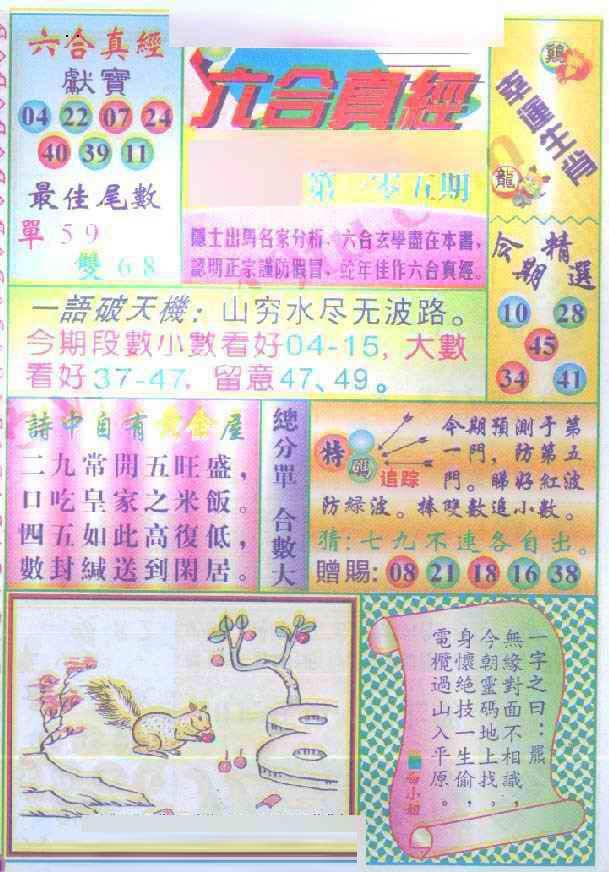 六合真經
獻寶
04 22 07 24
40 39 11
最佳尾數
單 5 9
雙 6 8
六合真經
第一零五期
隱士出馬名家分析、六合玄學盡在本書,
認明正宗謹防假冒、蛇年佳作六合真經。
鷄
幸運生肖
龍
今期精選
10 28
45
34 41
一語破天機:山穷水尽无波路。
今期段數小數看好04-15, 大數
看好37-47, 留意47、49。
詩中自有黄金屋
二九常開五旺盛,
口吃皇家之米飯。
四五如此高復低,
數封緘送到閑居。
總分單 合數大
特碼追踪
今期預測于第
一門, 防第五
門。睇好紅波
防綠波。捧雙數追小數。
猜:七九不連各自出。
贈賜: 08 21 18 16 38
一字之曰:羆
無緣對面不相識,
今朝靈碼地上找,
身懷絕技一生偷,
電欖過山入平原。
小姐